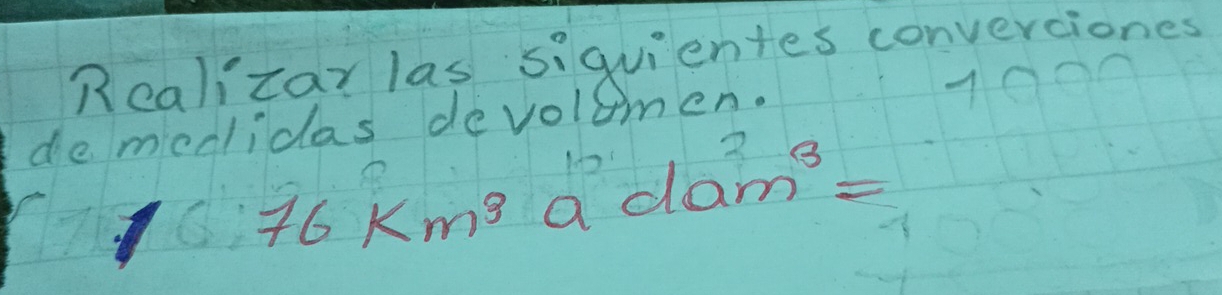 Realizar las siguientes converciones
de medidas de volumen.
1 76 Km³ a dam³ =